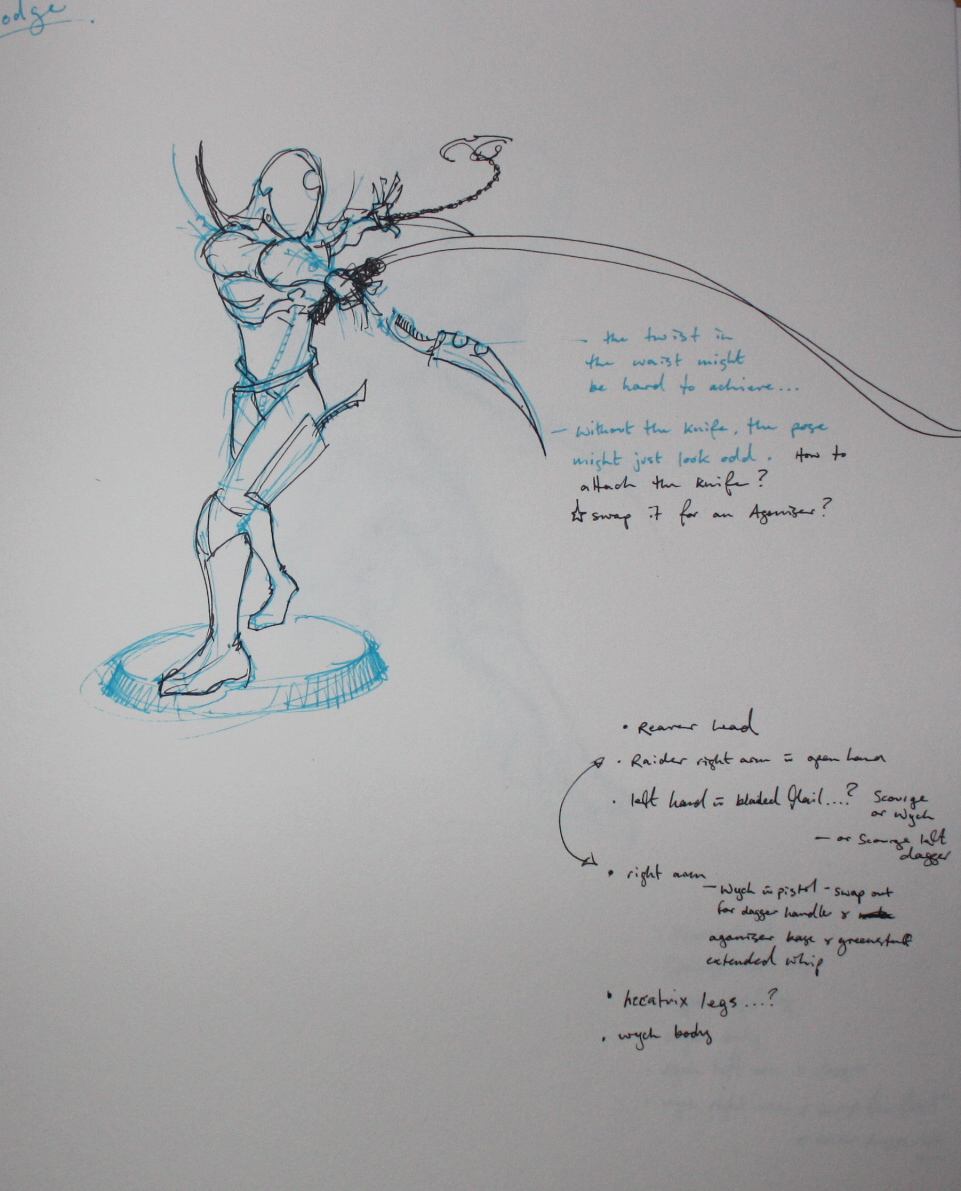 odge.
- the twist in
the waist might
be hard to achieve...
- without the knife, the pose
might just look odd. How to
attach the knife?
☆ swap it for an Agoniser?
• Reaver head
• Raider right arm = open hand
• left hand = bladed flail....? Scourge
or Wych
- or Scourge left
dagger
• right arm
- Wych = pistol - swap out
for dagger handle &
agoniser base & greenstuff
extended whip
• hecatrix legs...?
• wych body